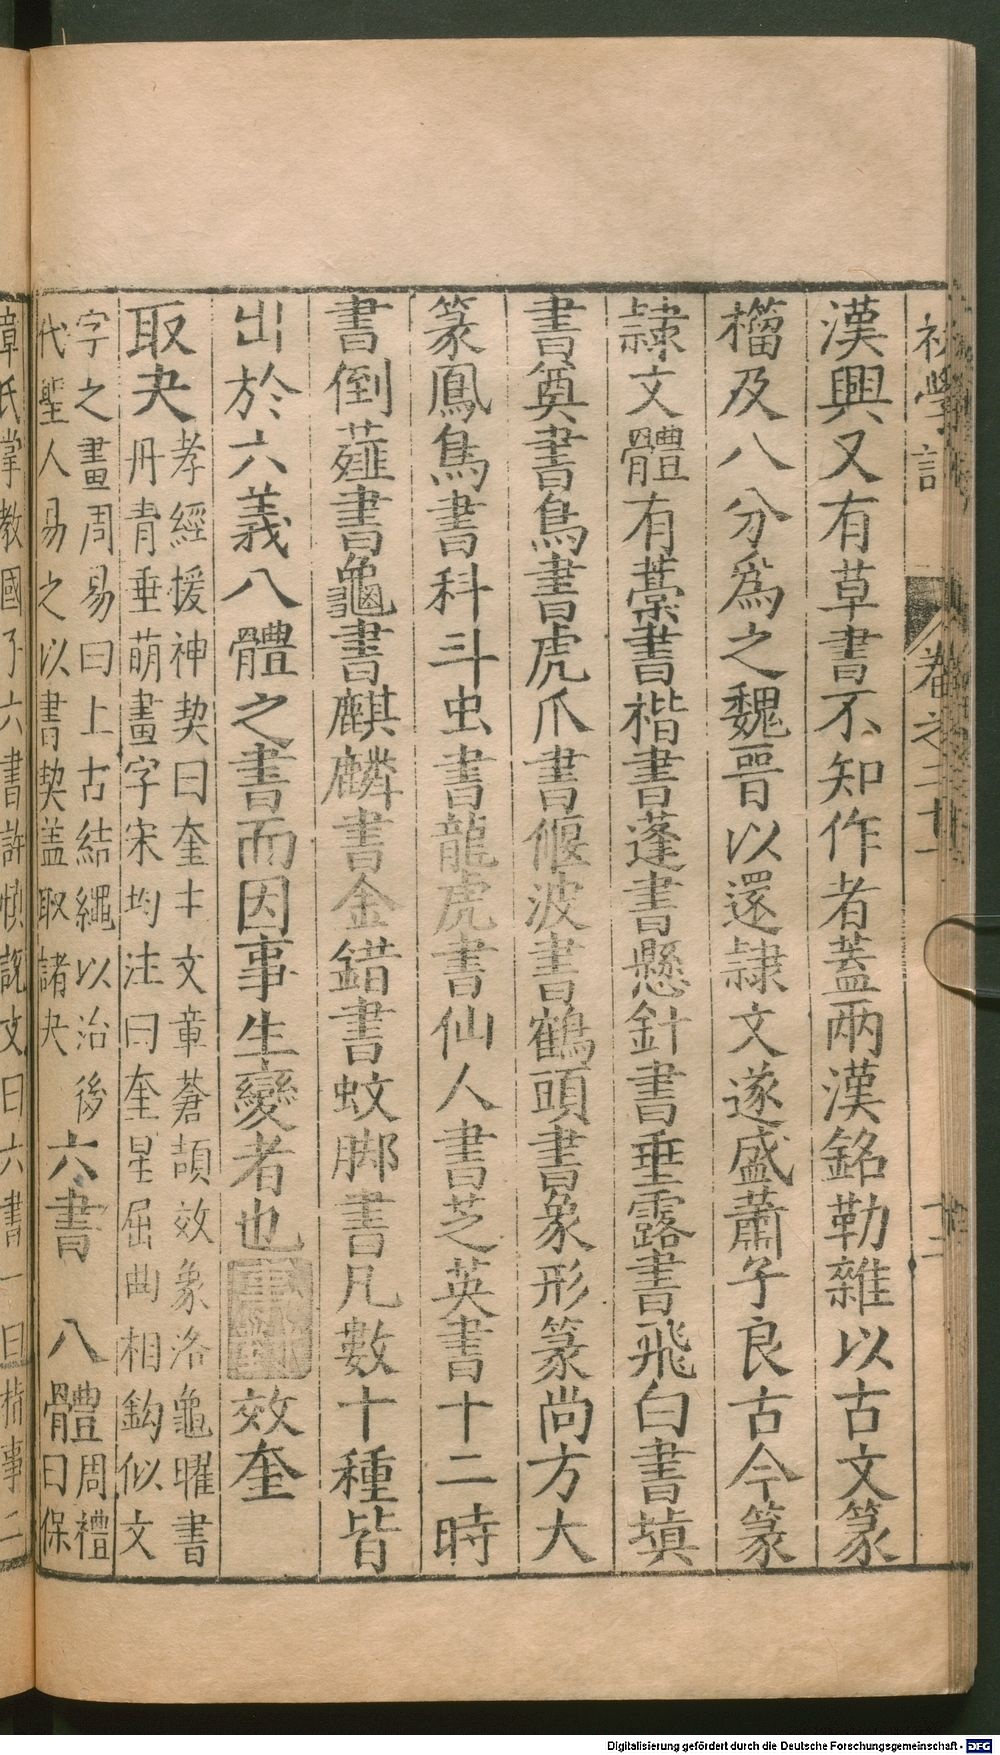 初學記 卷之二十一 十二
漢興又有草書不知作者蓋兩漢銘勒雜以古文篆
籀及八分爲之魏晉以還隷文遂盛蕭子良古今篆
隷文體有藁書楷書蓬書懸針書垂露書飛白書塡
書奠書鳥書虎爪書偃波書鶴頭書象形篆尚方大
篆鳳鳥書科斗虫書龍虎書仙人書芝英書十二時
書倒薤書龜書麒麟書金錯書蚊脚書凡數十種皆
出於六義八體之書而因事生變者也 事對 效奎
取夬 孝經援神契曰奎主文章蒼頡效象洛龜曜書
丹青垂萌畫字宋均注曰奎星屈曲相鈎似文
字之畫周易曰上古結繩以治後
代聖人易之以書契盖取諸夬
六書 八體 周禮
曰保
章氏掌教國子六書許愼説文曰六書一曰指事二
Digitalisierung gefördert durch die Deutsche Forschungsgemeinschaft - DFG